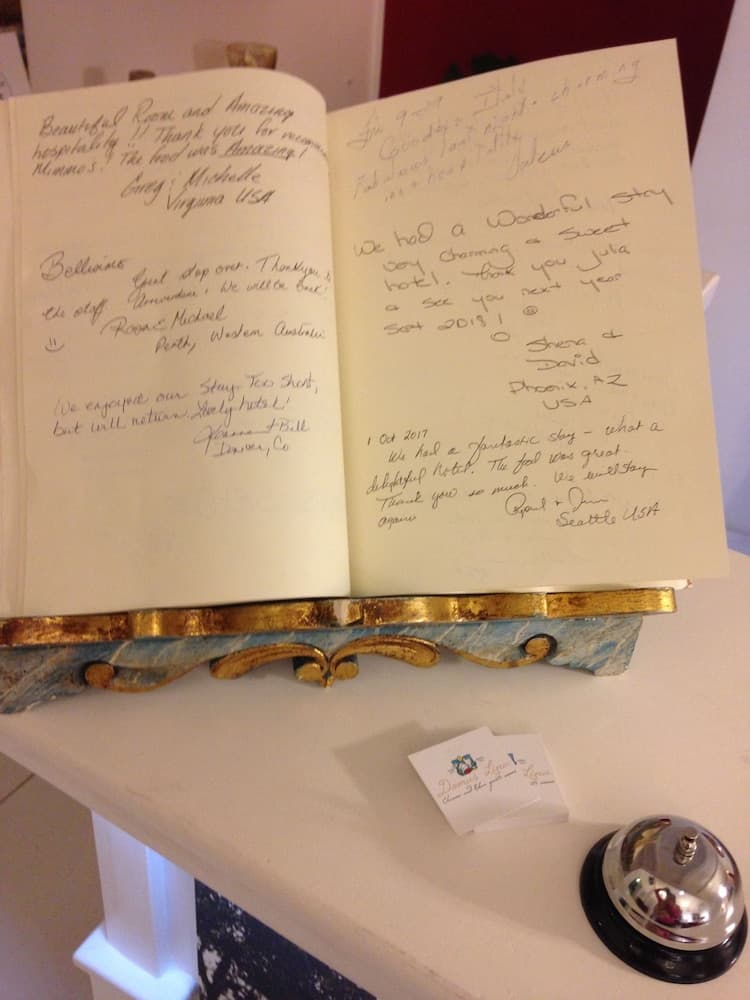 Beautiful Room and Amazing
hospitality!! Thank you for
Mimmos! The food was Amazing!
Greg & Michelle
Virginia USA
Bellissimo
Great stop over. Thankyou to
the staff. We will be back!
Michael
Perth, Western Australia
We enjoyed our Stay. Too Short,
but will return. Lovely hotel!
& Bill
Denver, Co
Fabulous last night - charming
We had a Wonderful Stay
very charming & Sweet
hotel. Thank you Julia
& see you next year
Sept 2018!
Shena &
David
Phoenix, AZ
USA
1 Oct 2017
We had a fantastic stay - what a
delightful hotel. The food was great.
Thank you so much. We will stay
again
Seattle USA